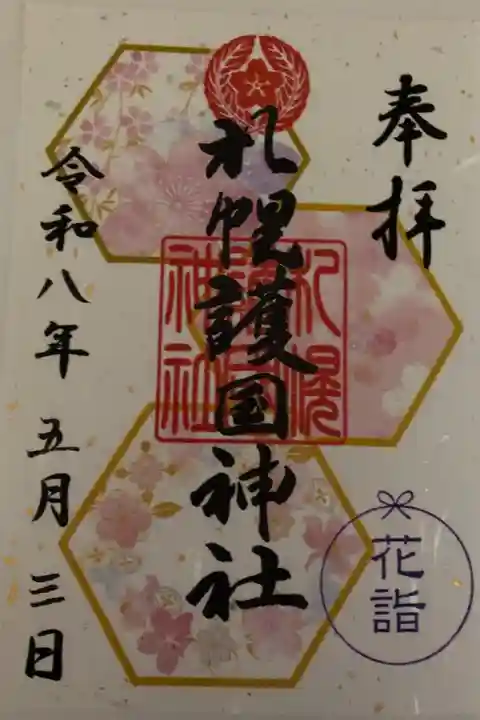 奉拝
札幌護国神社
札幌護国神社
令和八年 五月 三日
花詣